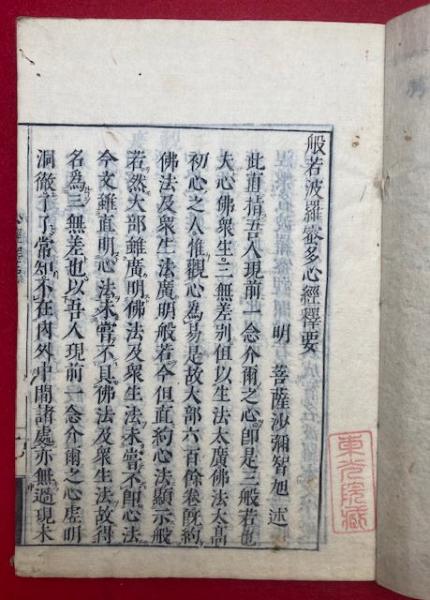 般若波羅蜜多心經釋要
明 菩薩沙彌智旭 述
此直指吾人現前一念介爾之心即是三般若也
夫心佛衆生三無差别但以生法太廣佛法太高
初心之人惟觀心為易是故大部六百餘卷既約
佛法及衆生法廣明般若今但直約心法顯示般
若然大部雖廣明佛法及衆生法未嘗不即心法
今文雖直明心法未嘗不具佛法及衆生法故得
名為三無差也以吾人現前一念介爾之心虚明
洞徹了了常知不在内外中間諸處亦無過現未
東光院藏